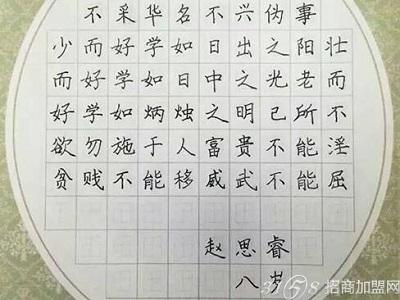 不采华名不兴伪事
少而好学如日出之阳壮
而好学如日中之光老而
好学如炳烛之明己所不
欲勿施于人富贵不能淫
贫贱不能移威武不能屈
赵思睿
八岁
3158招商加盟网